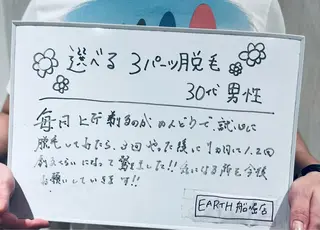 選べる 3パーツ脱毛
30代 男性
毎日ヒゲ剃るのがめんどうで、試しに
脱毛してもらたら、3回やった後に1週間に1、2回
剃るくらいになって驚きました!! 気になる所も今後
お願いしていきます!!
EARTH 船堀店